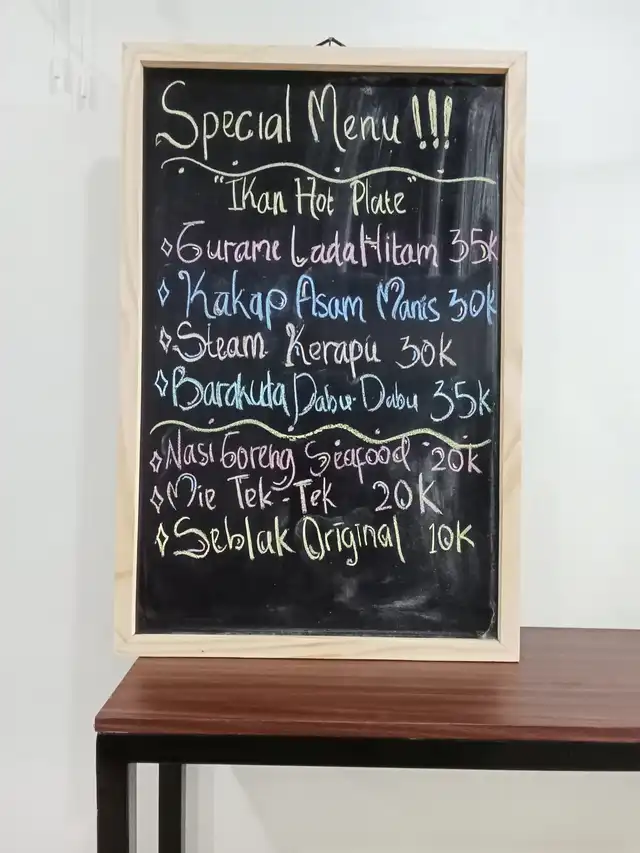 Special Menu !!!
"Ikan Hot Plate"
Gurame Lada Hitam 35K
Kakap Asam Manis 30K
Steam Kerapu 30K
Barakuda Dabu-Dabu 35K
Nasi Goreng Seafood 20K
Mie Tek-Tek 20K
Seblak Original 10K